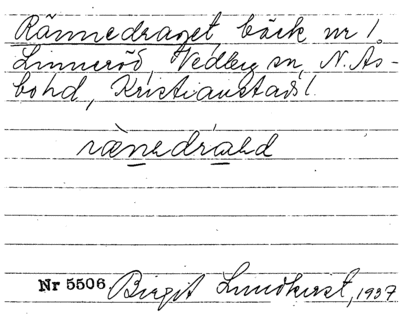 Rännedraget, bäck nr 1.
Linneröd, Vedby sn, N. Ås-
bohd, Kristianstads l.
rænedrahd
Nr 5506. Birgit Lundkvist, 1937